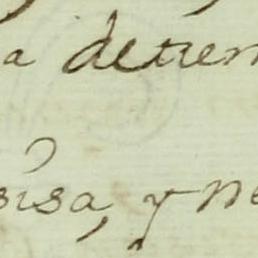 a deter
sisa, y ne